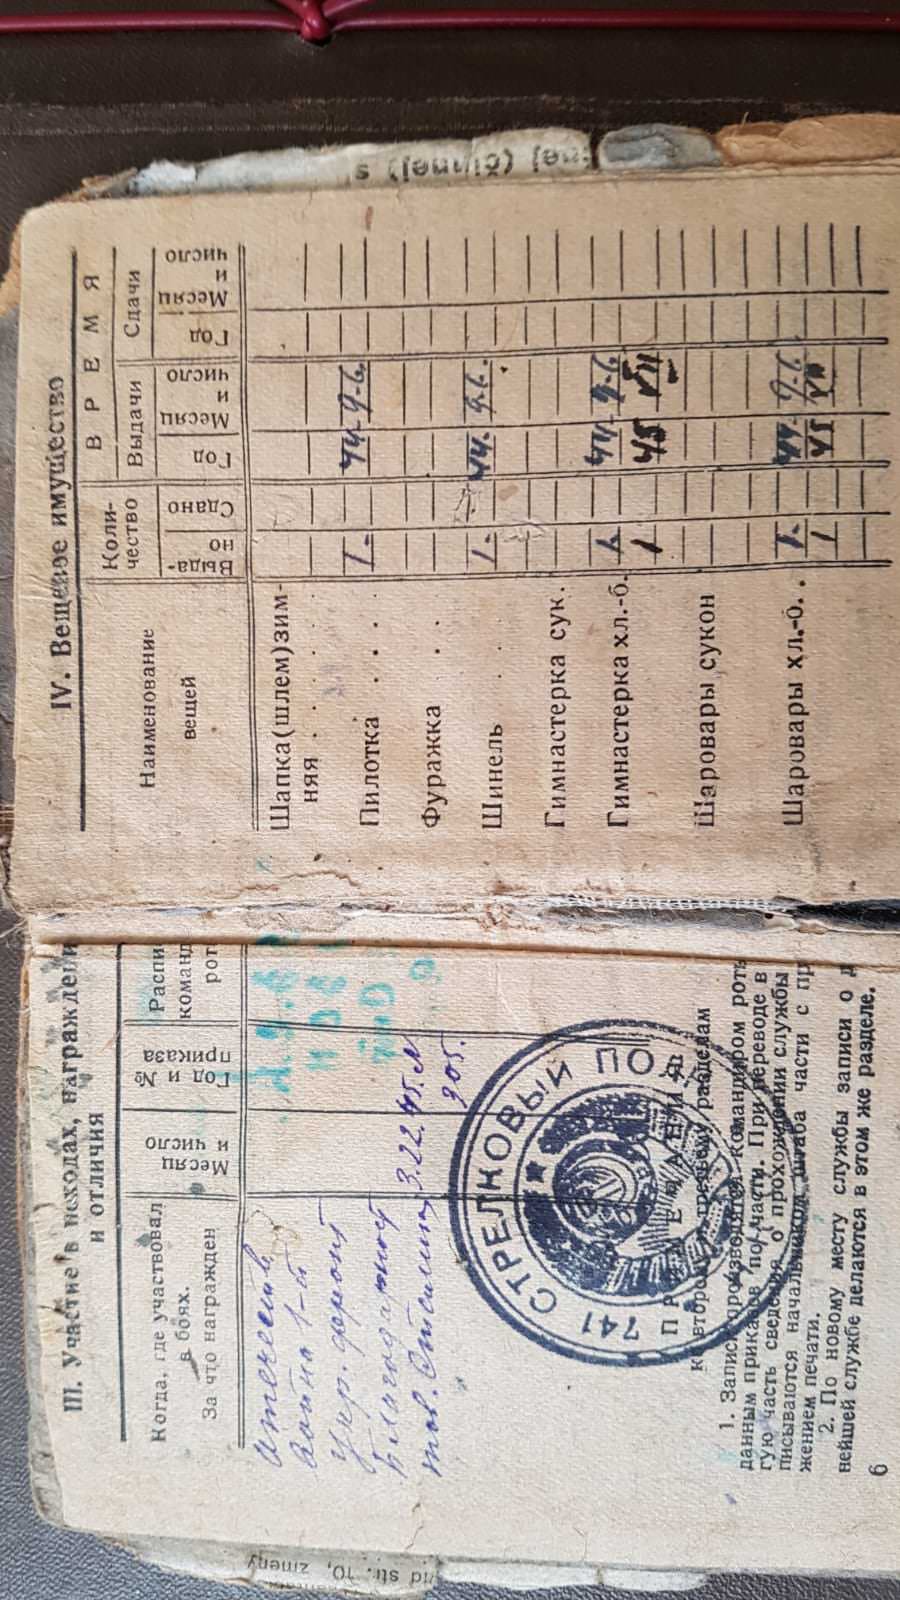 III. Участие в походах, награждени
и отличия
Когда, где участвовал
в боях.
За что награжден
Месяц
и число
Год и №
приказа
Распи
команд
рот
отечеств
война 1-й
укр. фронт
благодарност
тов. Сталин 3.22.45г. N
205.
741 СТРЕЛКОВЫЙ ПОЛК
ПРИМЕЧАНИЯ
ко второму и третьему разделам
1. Записи производятся командиром роты
данным приказов по части. При переводе в
гую часть сведения о прохождении службы
писываются начальником штаба части с пр
жением печати.
2. По новому месту службы записи о д
нейшей службе делаются в этом же разделе.
6
IV. Вещевое имущество
Наименование
вещей
Коли-
чество
ВРЕМЯ
Выдачи
Сдачи
Выда-
но
Сдано
Год
Месяц
и
число
Год
Месяц
и
число
Шапка (шлем) зим-
няя . . . . .
Пилотка . . . 1. 44 9.6.
Фуражка . .
Шинель . . . 1. 44. 9.6.
Гимнастерка сук.
Гимнастерка хл.-б. 1. 44 9.6
1 45 VII
Шаровары сукон
Шаровары хл.-б. . 1. 44. 9.6.
1 45
str. 10, zmeny
(čiunej) s